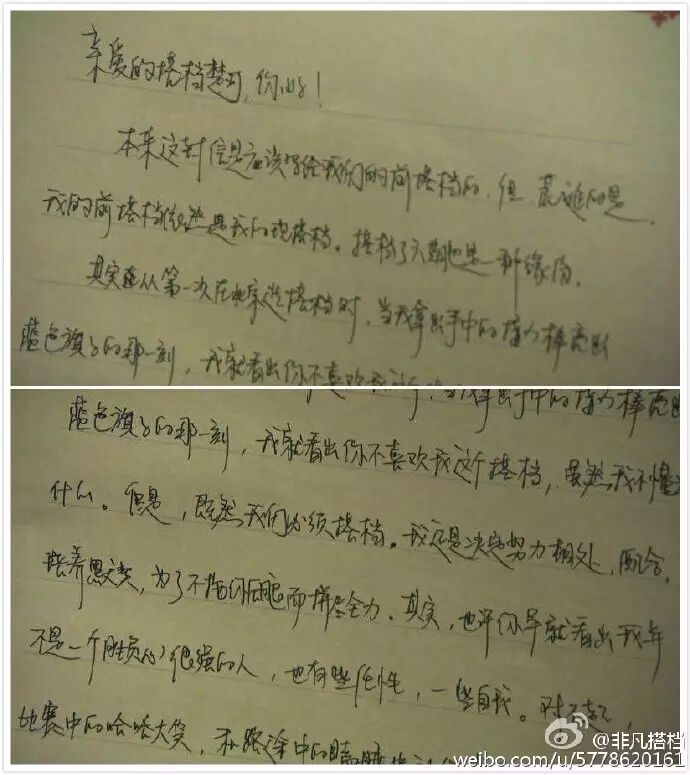 亲爱的搭档梦珂,你好!
本来这封信是应该写给我们的前搭档的,但,荒诞的是,
我的前搭档还是我的现搭档。搭档了六期也是一种缘份。
其实在从第一次在火车选搭档时,当我拿出手中的接力棒亮出
蓝色旗子的那一刻,我就看出你不喜欢我这个
拿出手中的接力棒亮出
蓝色旗子的那一刻,我就看出你不喜欢我这个搭档,虽然我不懂为
什么。但是,既然我们必须搭档。我还是决定努力相处,配合,
培养默契,为了不拖你后腿而拼尽全力。其实,也许你早就看出我并
不是一个胜负心很强的人,也有些任性,一些自我。对不起,
比赛中的哈哈大笑,和路途中的
@非凡搭档
weibo.com/u/5778620161